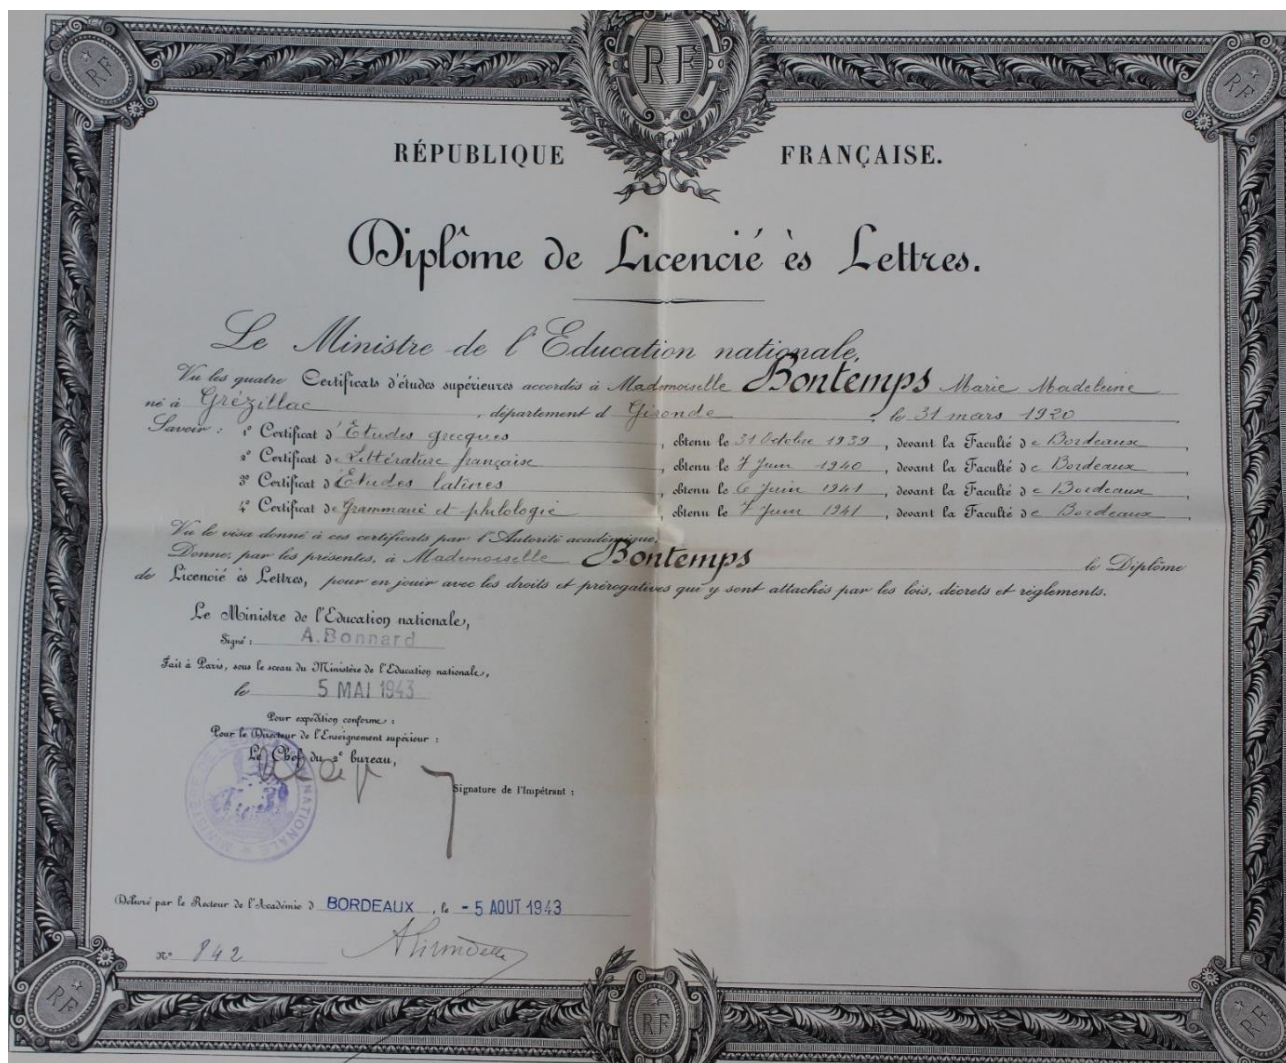 RF
RF
RF
RÉPUBLIQUE FRANÇAISE.
Diplôme de Licencié ès Lettres.
Le Ministre de l'Education nationale,
Vu les quatre Certificats d'études supérieures accordés à Mademoiselle Bontemps Marie Madeleine
né à Grézillac, département d Gironde, le 31 mars 1920
Savoir : 1° Certificat d'Études grecques, obtenu le 31 Octobre 1939, devant la Faculté de Bordeaux
2° Certificat de Littérature française, obtenu le 7 Juin 1940, devant la Faculté de Bordeaux,
3° Certificat d'Études latines, obtenu le 6 Juin 1941, devant la Faculté de Bordeaux,
4° Certificat de Grammaire et philologie, obtenu le 7 Juin 1941, devant la Faculté de Bordeaux,
Vu le visa donné à ces certificats par l'Autorité académique,
Donne, par les présentes, à Mademoiselle Bontemps le Diplôme
de Licencié ès Lettres, pour en jouir avec les droits et prérogatives qui y sont attachés par les lois, décrets et règlements.
Le Ministre de l'Education nationale,
Signé : A. Bonnard
Fait à Paris, sous le sceau du Ministère de l'Education nationale,
le 5 MAI 1943
Pour expédition conforme :
Pour le Directeur de l'Enseignement supérieur :
Le Chef du 2e bureau,
Signature de l'Impétrant :
Délivré par le Recteur de l'Académie d BORDEAUX, le - 5 AOUT 1943
N° 842
RF
RF
RF